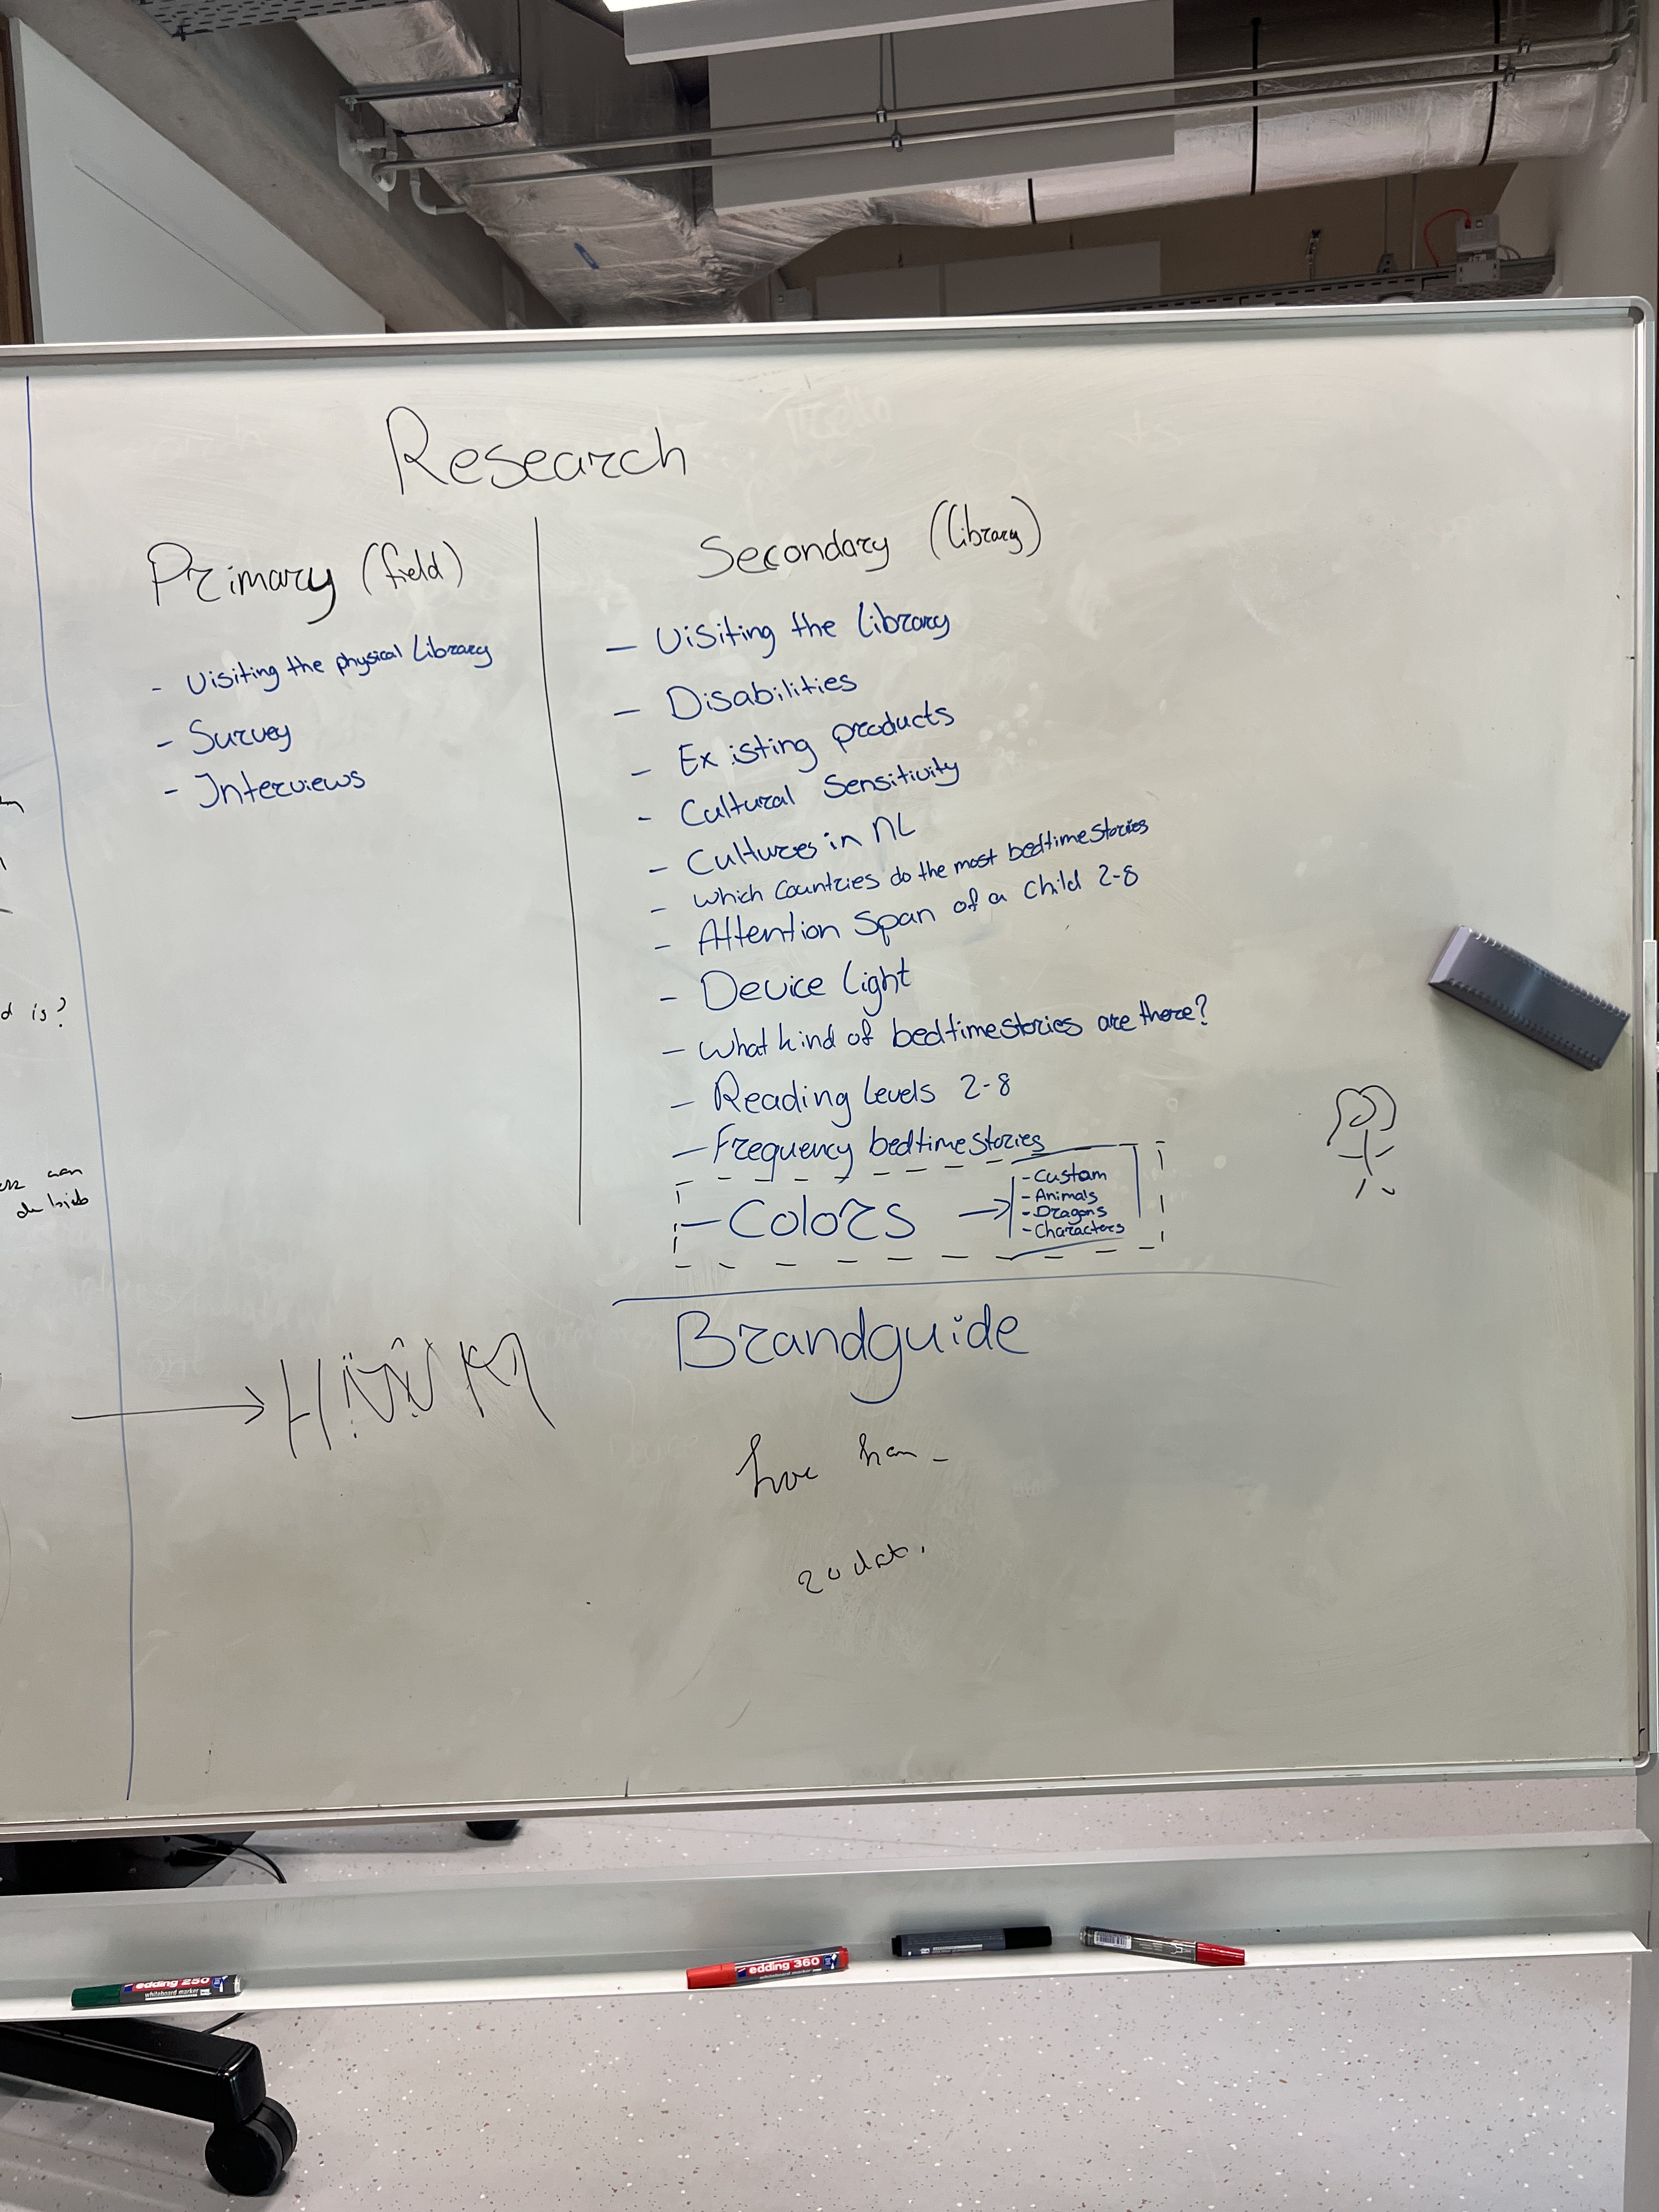 Research
Primary (field)
- Visiting the physical Library
- Survey
- Interviews
Secondary (Library)
- Visiting the Library
- Disabilities
- Existing products
- Cultural Sensitivity
- Cultures in NL
- which Countries do the most bedtimestories
- Attention Span of a child 2-8
- Device Light
- What kind of bedtimestories are there?
- Reading Levels 2-8
- Frequency bedtimestories
- Colors →
- Custom
- Animals
- Dragons
- Characters
Brandguide
is?
aan
edding 250
whiteboard marker
edding 360
whiteboard marker